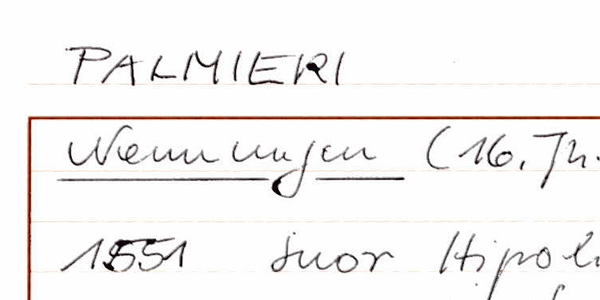 PALMIERI
Nennungen (16. Jh.
1551 Suor Hipoli